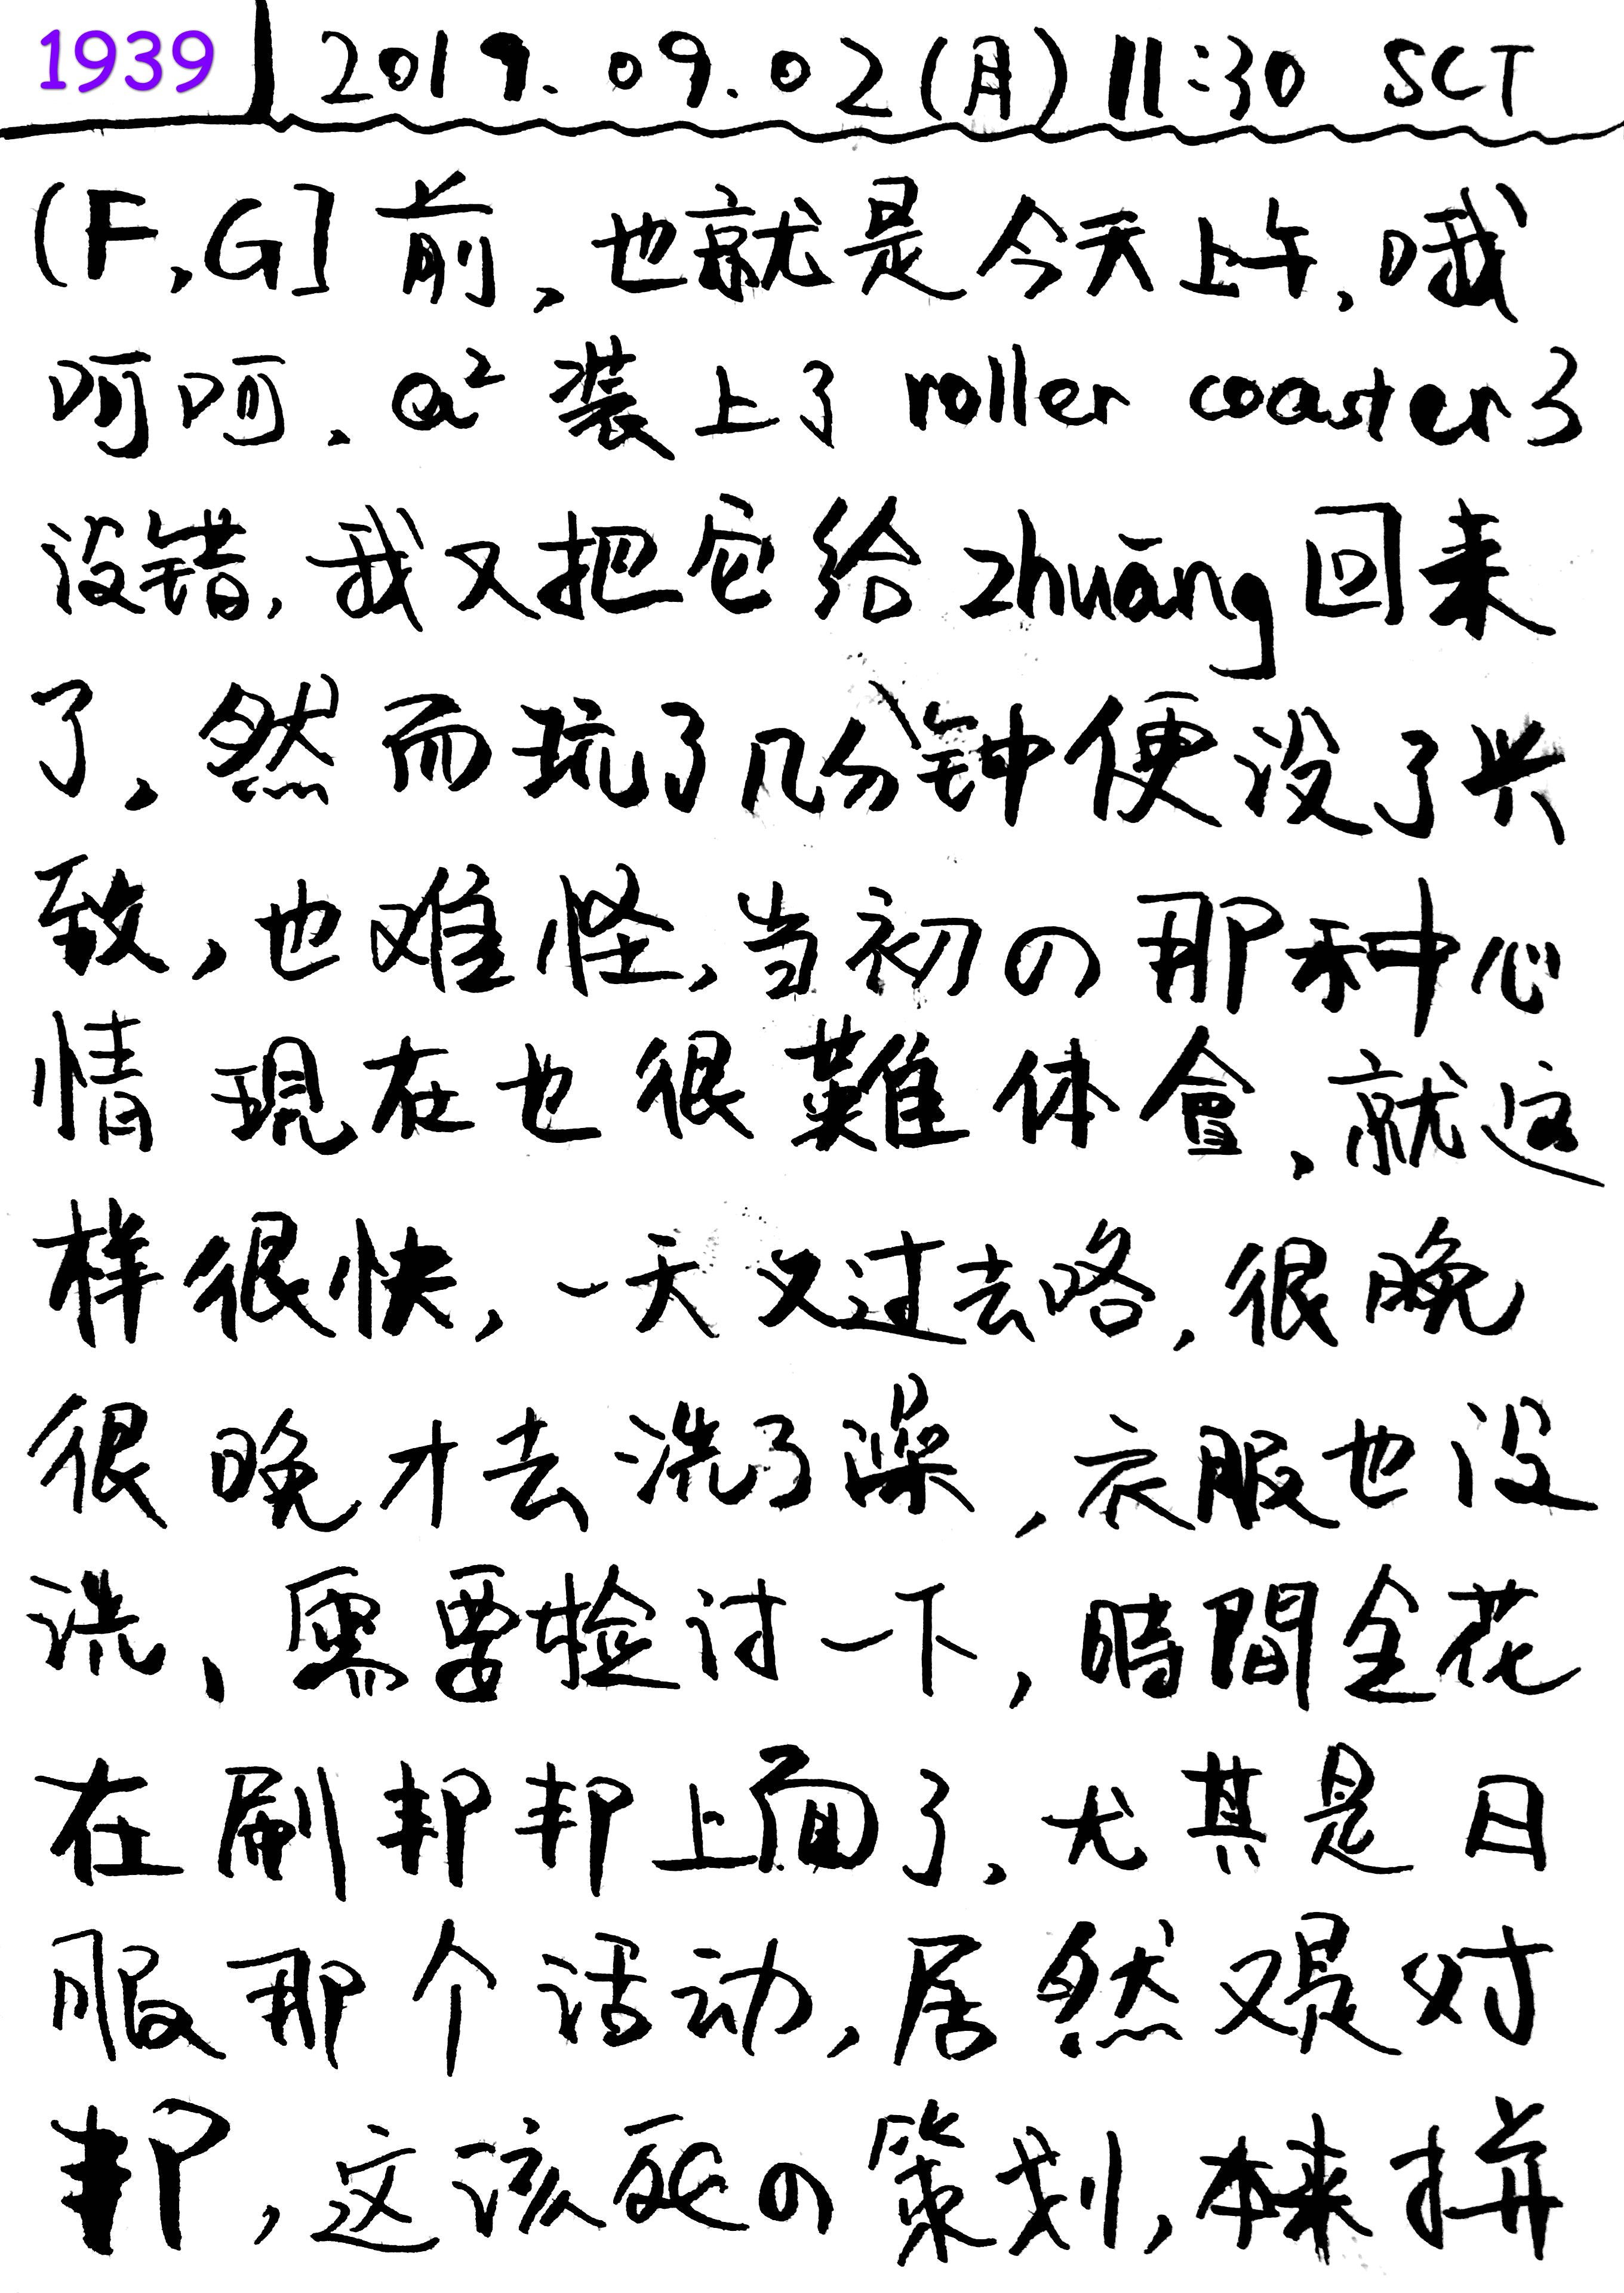 1939 2019.09.02(月)11:30 SCT
(F,G]前,也就是今天上午,哦
呵呵,a²装上了roller coaster3
没错,我又把它给zhuāng回来
了,然而玩了几分钟便没了兴
致,也难怪,当初の那种心
情現在也很難体會,就这
样很快,一天又过去咯,很晚
很晚才去洗了澡,衣服也没
洗、需要检讨一下,時間全花
在刷邦邦上面了,尤其是日
服那个活动,居然又是对
邦,这该死の策划,本来拼